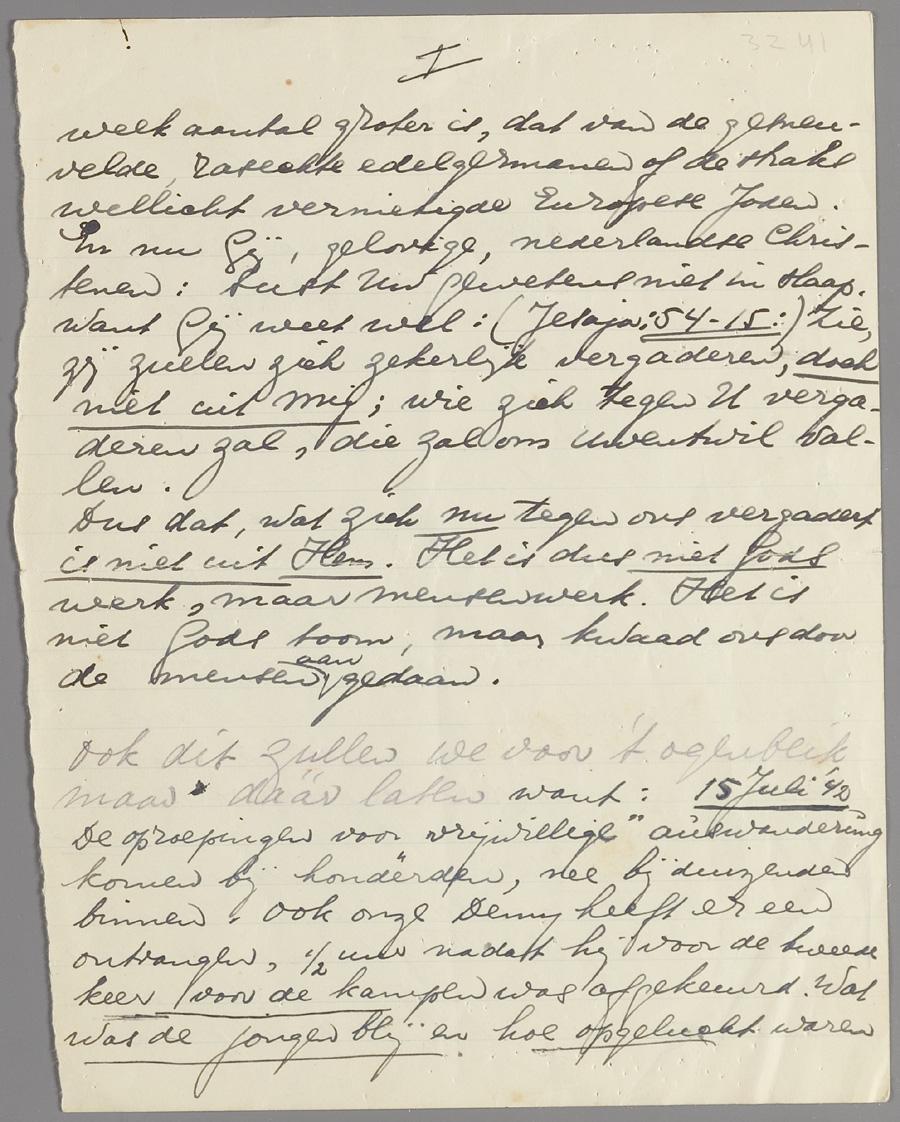 3241
I
welk aantal groter is, dat van de gesneu-
velde, rasechte edelgermanen of de straks
wellicht vernietigde Europese Joden.
En nu Gij, gelovige, nederlandse Chris-
tenen: Sust Uw gewetens niet in slaap.
want Gij weet wel: (Jesaja: 54-15:) Zie,
zij zullen zich zekerlijk vergaderen, doch
niet uit mij; wie zich tegen U verga-
deren zal, die zal om Uwentwil val-
len.
Dus dat, wat zich nu tegen ons vergadert
is niet uit Hem. Het is dus niet Gods
werk, maar mensenwerk. Het is
niet Gods toorn, maar kwaad ons door
de mensen aangedaan.
Ook dit zullen we voor 't ogenblik
maar dáár laten want: 15 Juli '42
De oproepingen voor vrijwillige" auswanderung
komen bij honderden, nee bij duizenden
binnen. Ook onze Demy heeft er een
ontvangen, 1/2 uur nadat hij voor de tweede
keer voor de kampen was afgekeurd. Wat
was de jongen blij en hoe opgelucht waren